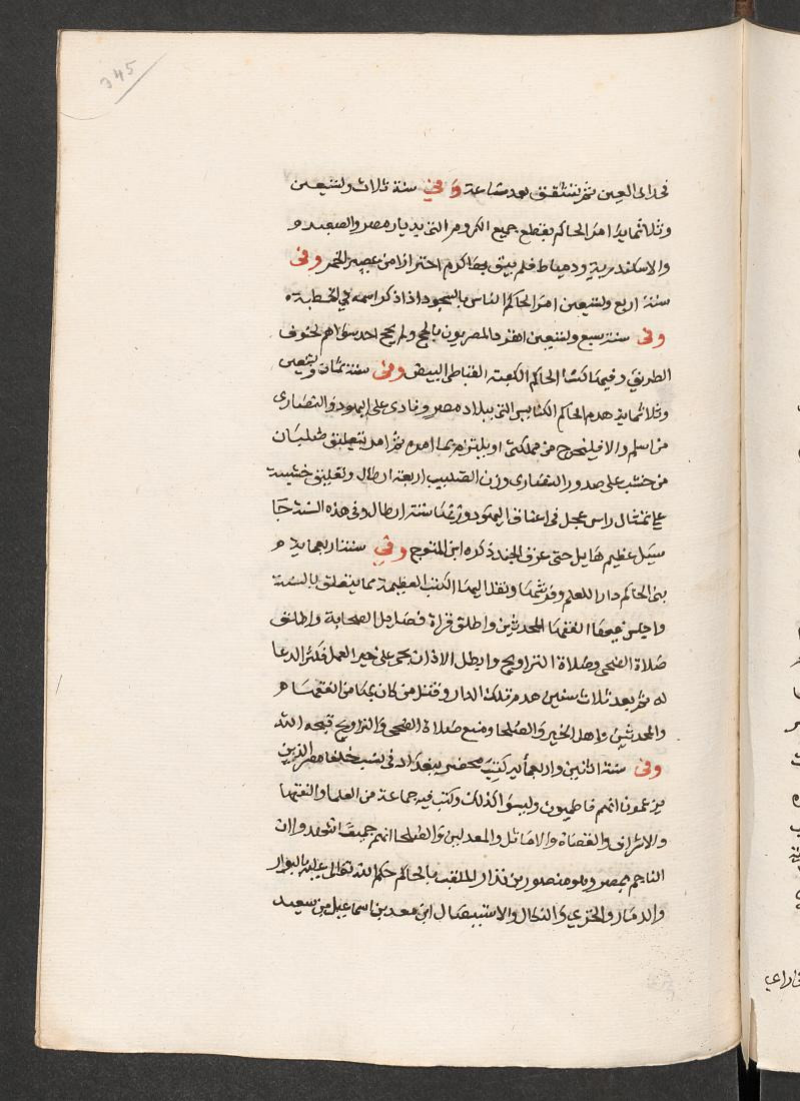 345
في راى العين ثم تشقق بعد ساعة وفي سنة ثلاث وتسعين
وثلاثماية امر الحاكم بقطع جميع الكروم التي بديار مصر والصعيد و
والاسكندرية ودمياط فلم يبق بها كرم احترازا من عصير الخمر وفي
سنة اربع وتسعين امر الحاكم الناس بالسجود اذا ذكر اسمه في الخطبة
وفي سنة سبع وتسعين انفرد المصريون بالحج ولم يحج احد سواهم لخوف
الطريق وفيها كسا الحاكم الكعبة القباطي البيض وفي سنة ثمان وتسعين
وثلاثماية هدم الحاكم الكنايس التي ببلاد مصر ونادى على اليهود والنصارى
من اسلم والا فليخرج من مملكتي او يلتزم بما امره ثم امر بتعليق صلبان
من خشب على صدور النصارى وزن الصليب اربعة ارطال وتعليق خشبة
على تمثال راس عجل في اعناق اليهود وزنها ستة ارطال وفي هذه السنة جا
سيل عظيم هايل حتى غرق الجند ذكره ابن المتوج وفي سنة اربعماية
بنى الحاكم دارا للعلم وفرشها ونقل اليها الكتب العظيمة مما يتعلق بالسنة
واجلس فيها الفقها المحدثين واطلق قراة فضايل الصحابة واطلق
صلاة الضحى وصلاة التراويح وابطل الاذان بحي على خير العمل فكثر الدعا
له ثم بعد ثلاث سنين هدم تلك الدار وقتل من كان بها من الفقها
والمحدثين واهل الخير والصلحا ومنع صلاة الضحى والتراويح قبحه الله
وفي سنة اثنين واربعماية كتب محضر ببغداد في نسب خلفا مصر الذين
يزعمون انهم فاطميون وليسوا كذلك وكتب فيه جماعة من العلما والفقها
والاشراف والقضاة والاماثل والمعدلين والصلحا انهم جميعا شهدوا ان
الناجم بمصر وهو منصور بن نذار الملقب بالحاكم حكم الله تعالى عليه بالبوار
والدمار والخزي والنكال والاستيصال ابن معد بن اسماعيل بن سعيد